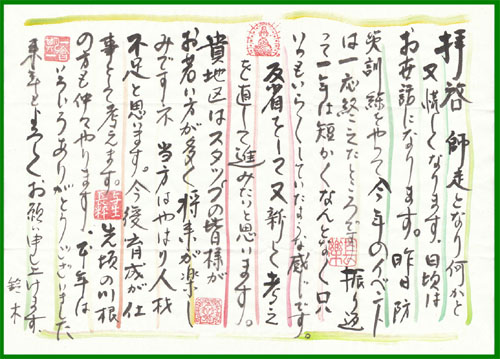 拝啓 師走となり何かと
又慌しくなります。日頃は
お世話になります。昨日防
災訓練をやって今年のイベント
は一応終了えたところです。振り返
って一年は短かくなんとなく只
いつもいらいらしていたような感じです。
反省をして又新しく考え
を直して進みたいと思います。
貴地区はスタッフの皆様が
お若い方が多く将来が楽し
みです。当方はやはり人材
不足と思います。今後育成が仕
事と考えます。先頃の川根
の方も仲々やります。本年は
いろいろありがとうございました
来年もよろしくお願い申し上げます
鈴木